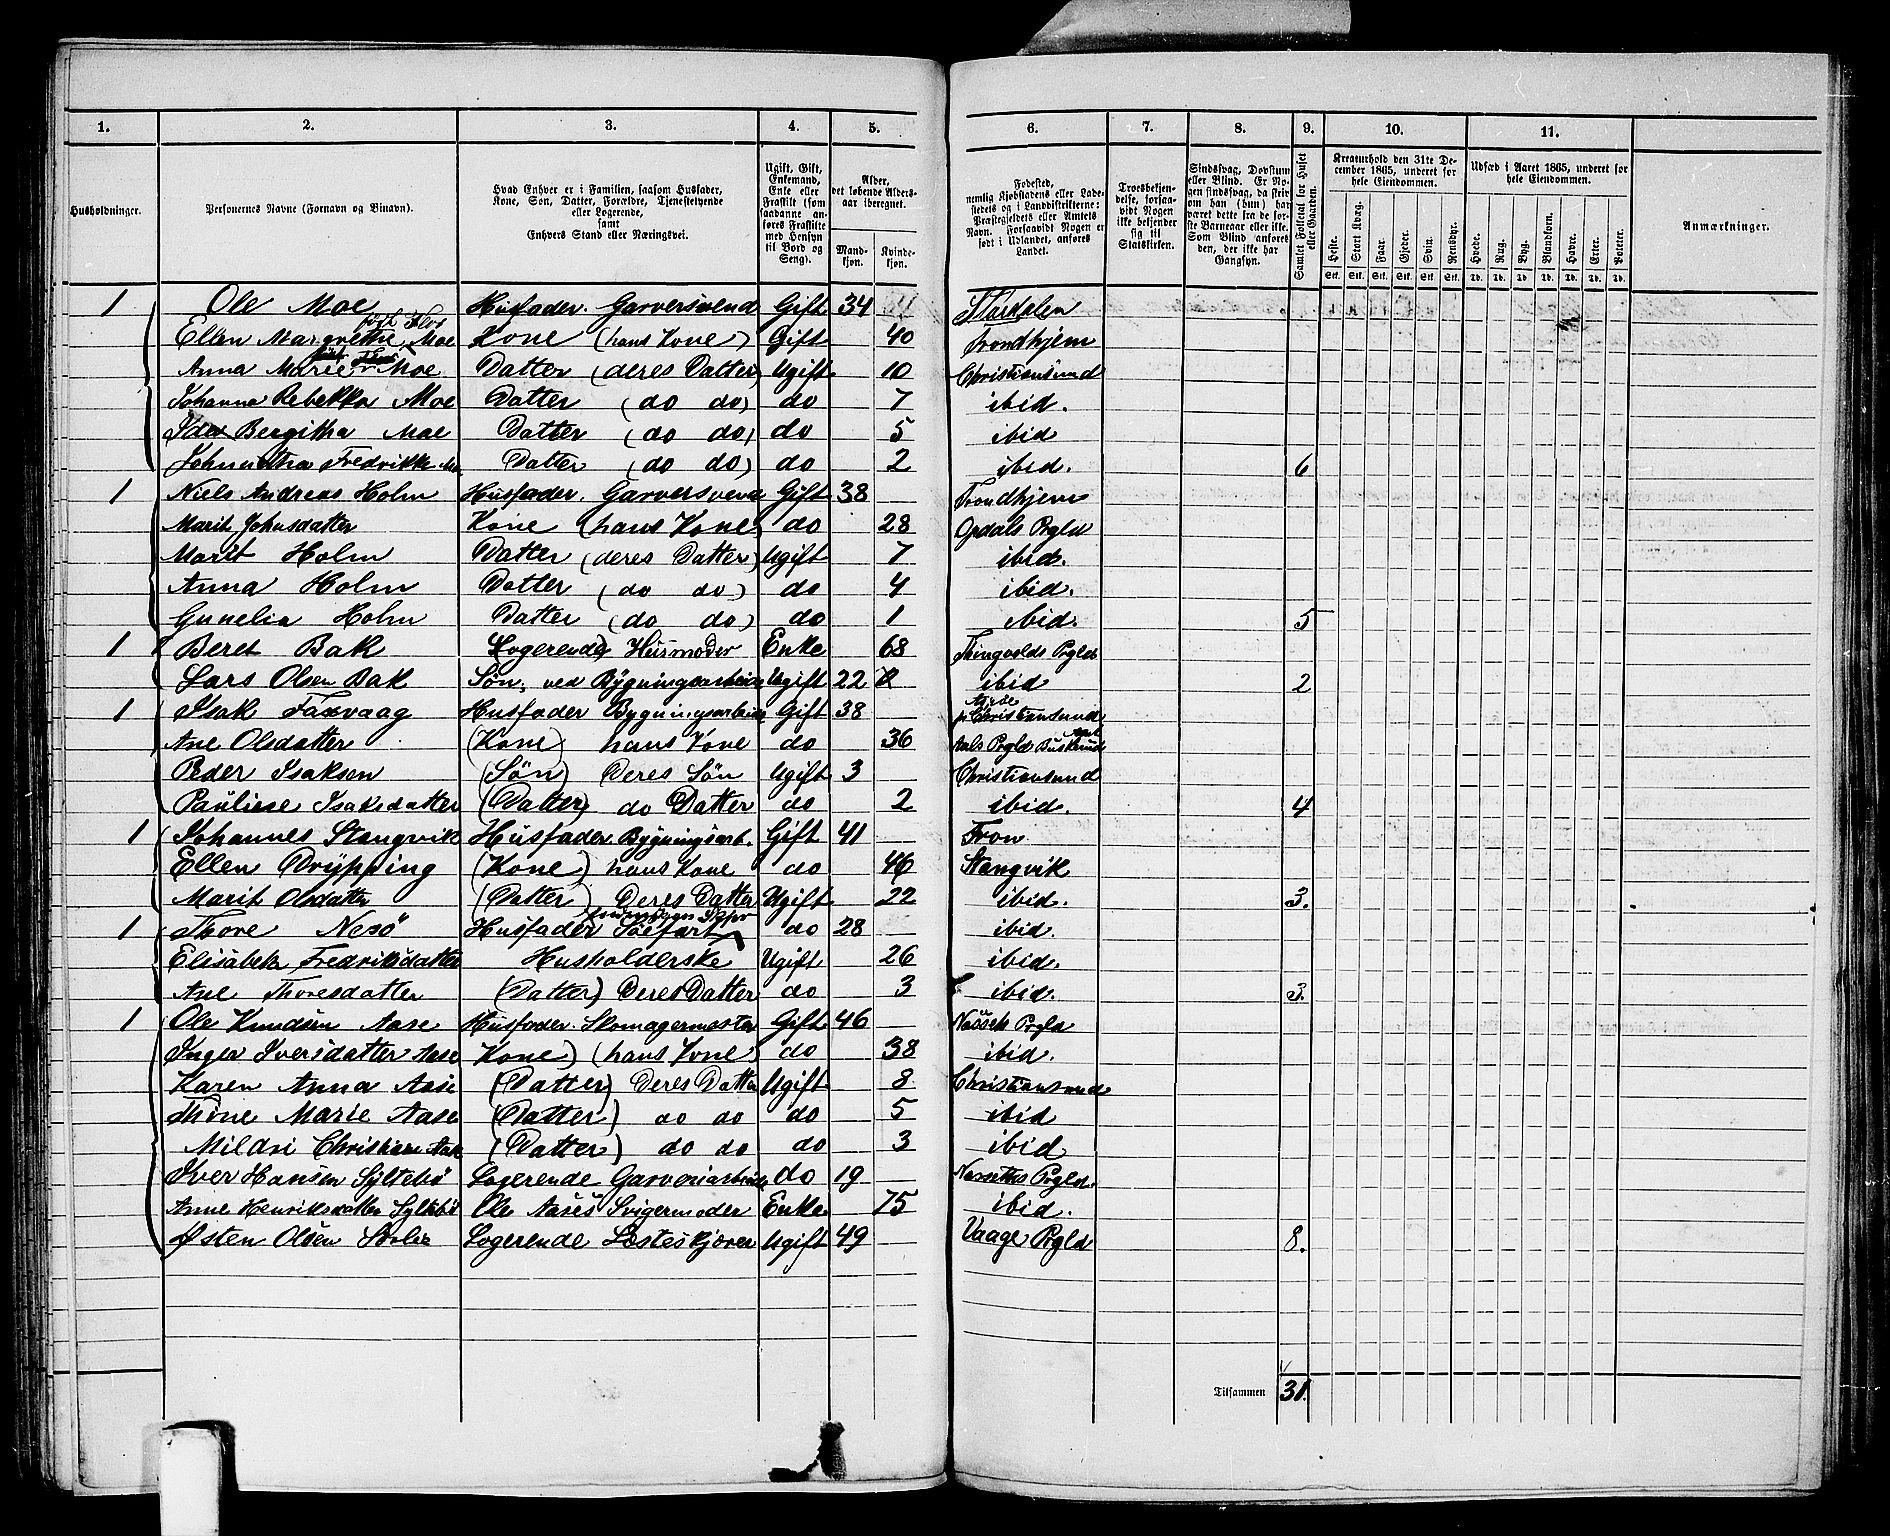 1. 2. 3. 4. 5. 6. 7. 8. 9. 10. 11.
Husholdninger.
Personernes Navne (Fornavn og Binavn).
Hvad Enhver er i Familien, saasom Husfader, Kone, Søn, Datter, Forældre, Tjenestetyende eller Logerende, samt Enhvers Stand eller Næringsvei.
Ugift, Gift, Enkemand, Enke eller Fraskilt (som saadanne anføres Fraskilte med Hensyn til Bord og Seng).
Alder, det løbende Aldersaar iberegnet.
Mandkjøn. Kvindekjøn.
Fødested, nemlig Kjøbstadens eller Ladestedets og i Landdistrikterne: Præstegjeldets eller Amtets Navn. Forsaavidt Nogen er født i Udlandet, anføres Landet.
Troesbekjendelse, forsaavidt Nogen ikke bekjender sig til Statskirken.
Sindssvag, Døvstum eller Blind. Er Nogen sindssvag, da skriv om han (hun) har været dette fra de første Barneaar eller ikke. Som Blind anføres den, der ikke har Gangsyn.
Samlet Folketal for Huset eller Gaarden.
Kreaturhold den 31te December 1865, underet for hele Eiendommen.
Heste. Stort Kvæg. Faar. Gjeder. Svin. Rensdyr.
Stk. Stk. Stk. Stk. Stk. Stk.
Udsæd i Aaret 1865, underet for hele Eiendommen.
Hvede. Rug. Byg. Blandkorn. Havre. Erter. Poteter.
Td. Td. Td. Td. Td. Td. Td.
Anmærkninger.
1 Ole Moe Husfader. Garversvend Gift 34 Størdalen
Ellen Margrethe født Moe Kone (hans Kone) Gift 40 Trondhjem
Anna Marie Moe Datter (deres Datter) Ugift 10 Christiansund
Johanna Rebekka Moe Datter (do do) do 7 ibid.
Ida Bergitha Moe Datter (do do) do 5 ibid
Fredrikke Datter (do do) do 2 ibid. 6
1 Niels Andreas Holm Husfader. Garversvend Gift 38 Trondhjem
Marit Johnsdatter Kone (hans Kone) do 28 Opdals Prgld
Marit Holm Datter (deres Datter) Ugift 7 ibid.
Anna Holm Datter (do do) do 4 ibid.
Gunelia Holm Datter (do do) do 1 ibid. 5
1 Beret Bak Logerende Husmoder Enke 68 Thingvolds Prgld
Lars Olsen Bak Søn, ved Bygningsarbeide Ugift 22 ibid 2
1 Isak Faxvaag Husfader Bygningsarbeide Gift 38 Christiansund
Ane Olsdatter (Kone) hans Kone do 36 Aals Prgld Buskerud Amt
Peder Isaksen (Søn) Deres Søn Ugift 3 Christiansund
Pauline Isaksdatter (Datter) do Datter do 2 ibid. 4
1 Johannes Stangvik Husfader. Bygningsarb. Gift 41 Tron
Ellen Drypping (Kone) hans Kone do 46 Stangvik
Marit Olsdatter (Datter) Deres Datter Ugift 22 ibid. 3.
1 Thore Nesø Husfader Søefart do 28 ibid.
Elisabeth Fredriksdatter Husholderske Ugift 26 ibid.
Ane Thoresdatter (Datter) Deres Datter do 3 ibid. 3.
1 Ole Knudsen Aase Husfader. Skomagermester Gift 46 Nøsseth Prgld
Inger Iversdatter Aase Kone) (hans Kone) do 38 ibid.
Karen Anna Aase (Datter) Deres Datter Ugift 8 Christiansund
Thine Marie Aase (Datter) do do do 5 ibid
Mildri Christiane Aase (Datter) do do do 3 ibid
Iver Hansen Syltebø Logerende Garveriarbeide do 19 Nøsseths Prgld.
Anne Henriksdatter Syltebø Ole Aases Svigermoder Enke 75 ibid.
Østen Olsen Logerende Losteskjører Ugift 49 Vaage Prgld 8.
Tilsammen 31.